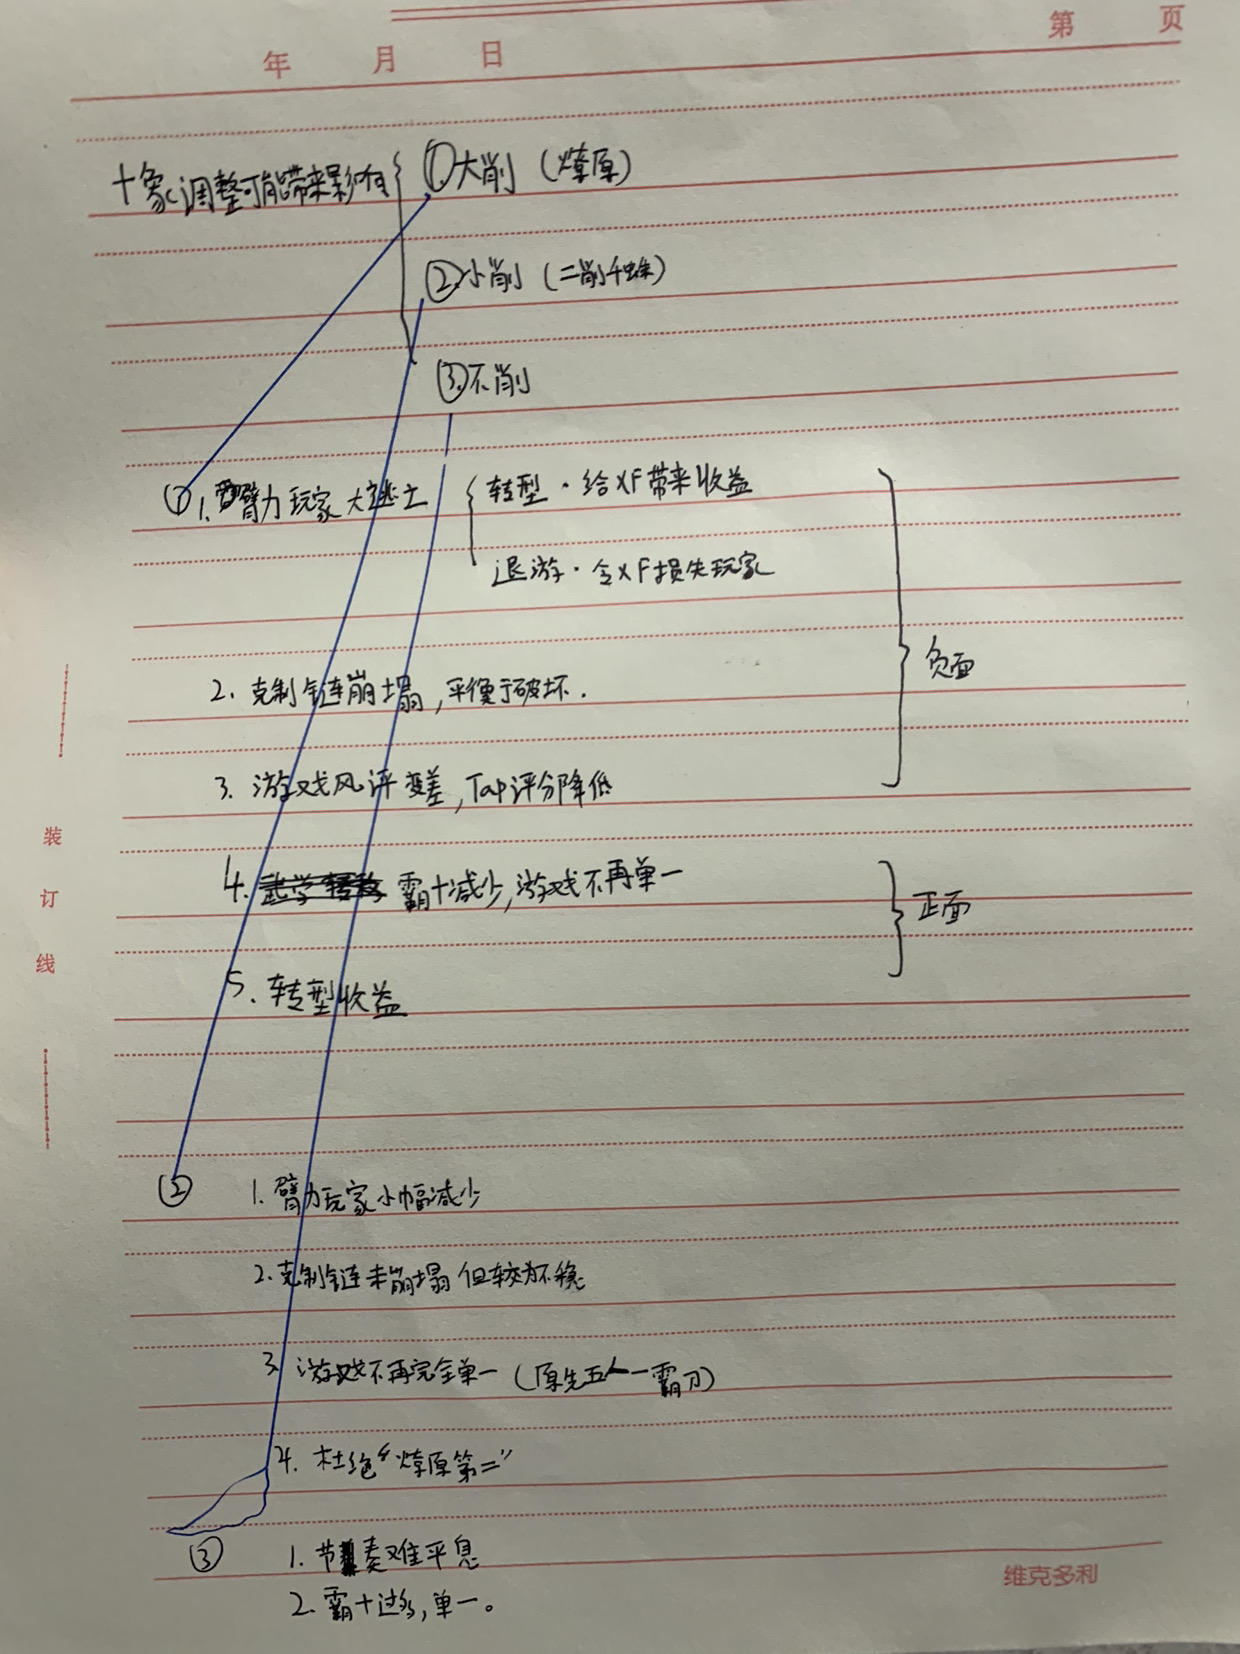 第 页
年 月 日
十象调整可能带来影响
①大削（燎原）
②小削（二削千蛛）
③不削
① 1. 臂力玩家大逃亡
转型·给XF带来收益
退游·令XF损失玩家
2. 克制链崩塌，平衡于破坏.
3. 游戏风评变差，Tap评分降低
负面
4. 霸十减少，游戏不再单一
5. 转型收益
正面
② 1. 臂力玩家小幅减少
2. 克制链未崩塌 但较为不稳
3. 游戏不再完全单一（原先五人一霸刀）
4. 杜绝“燎原第二”
③ 1. 节奏难平息
2. 霸十过多，单一。
装
订
线
维克多利